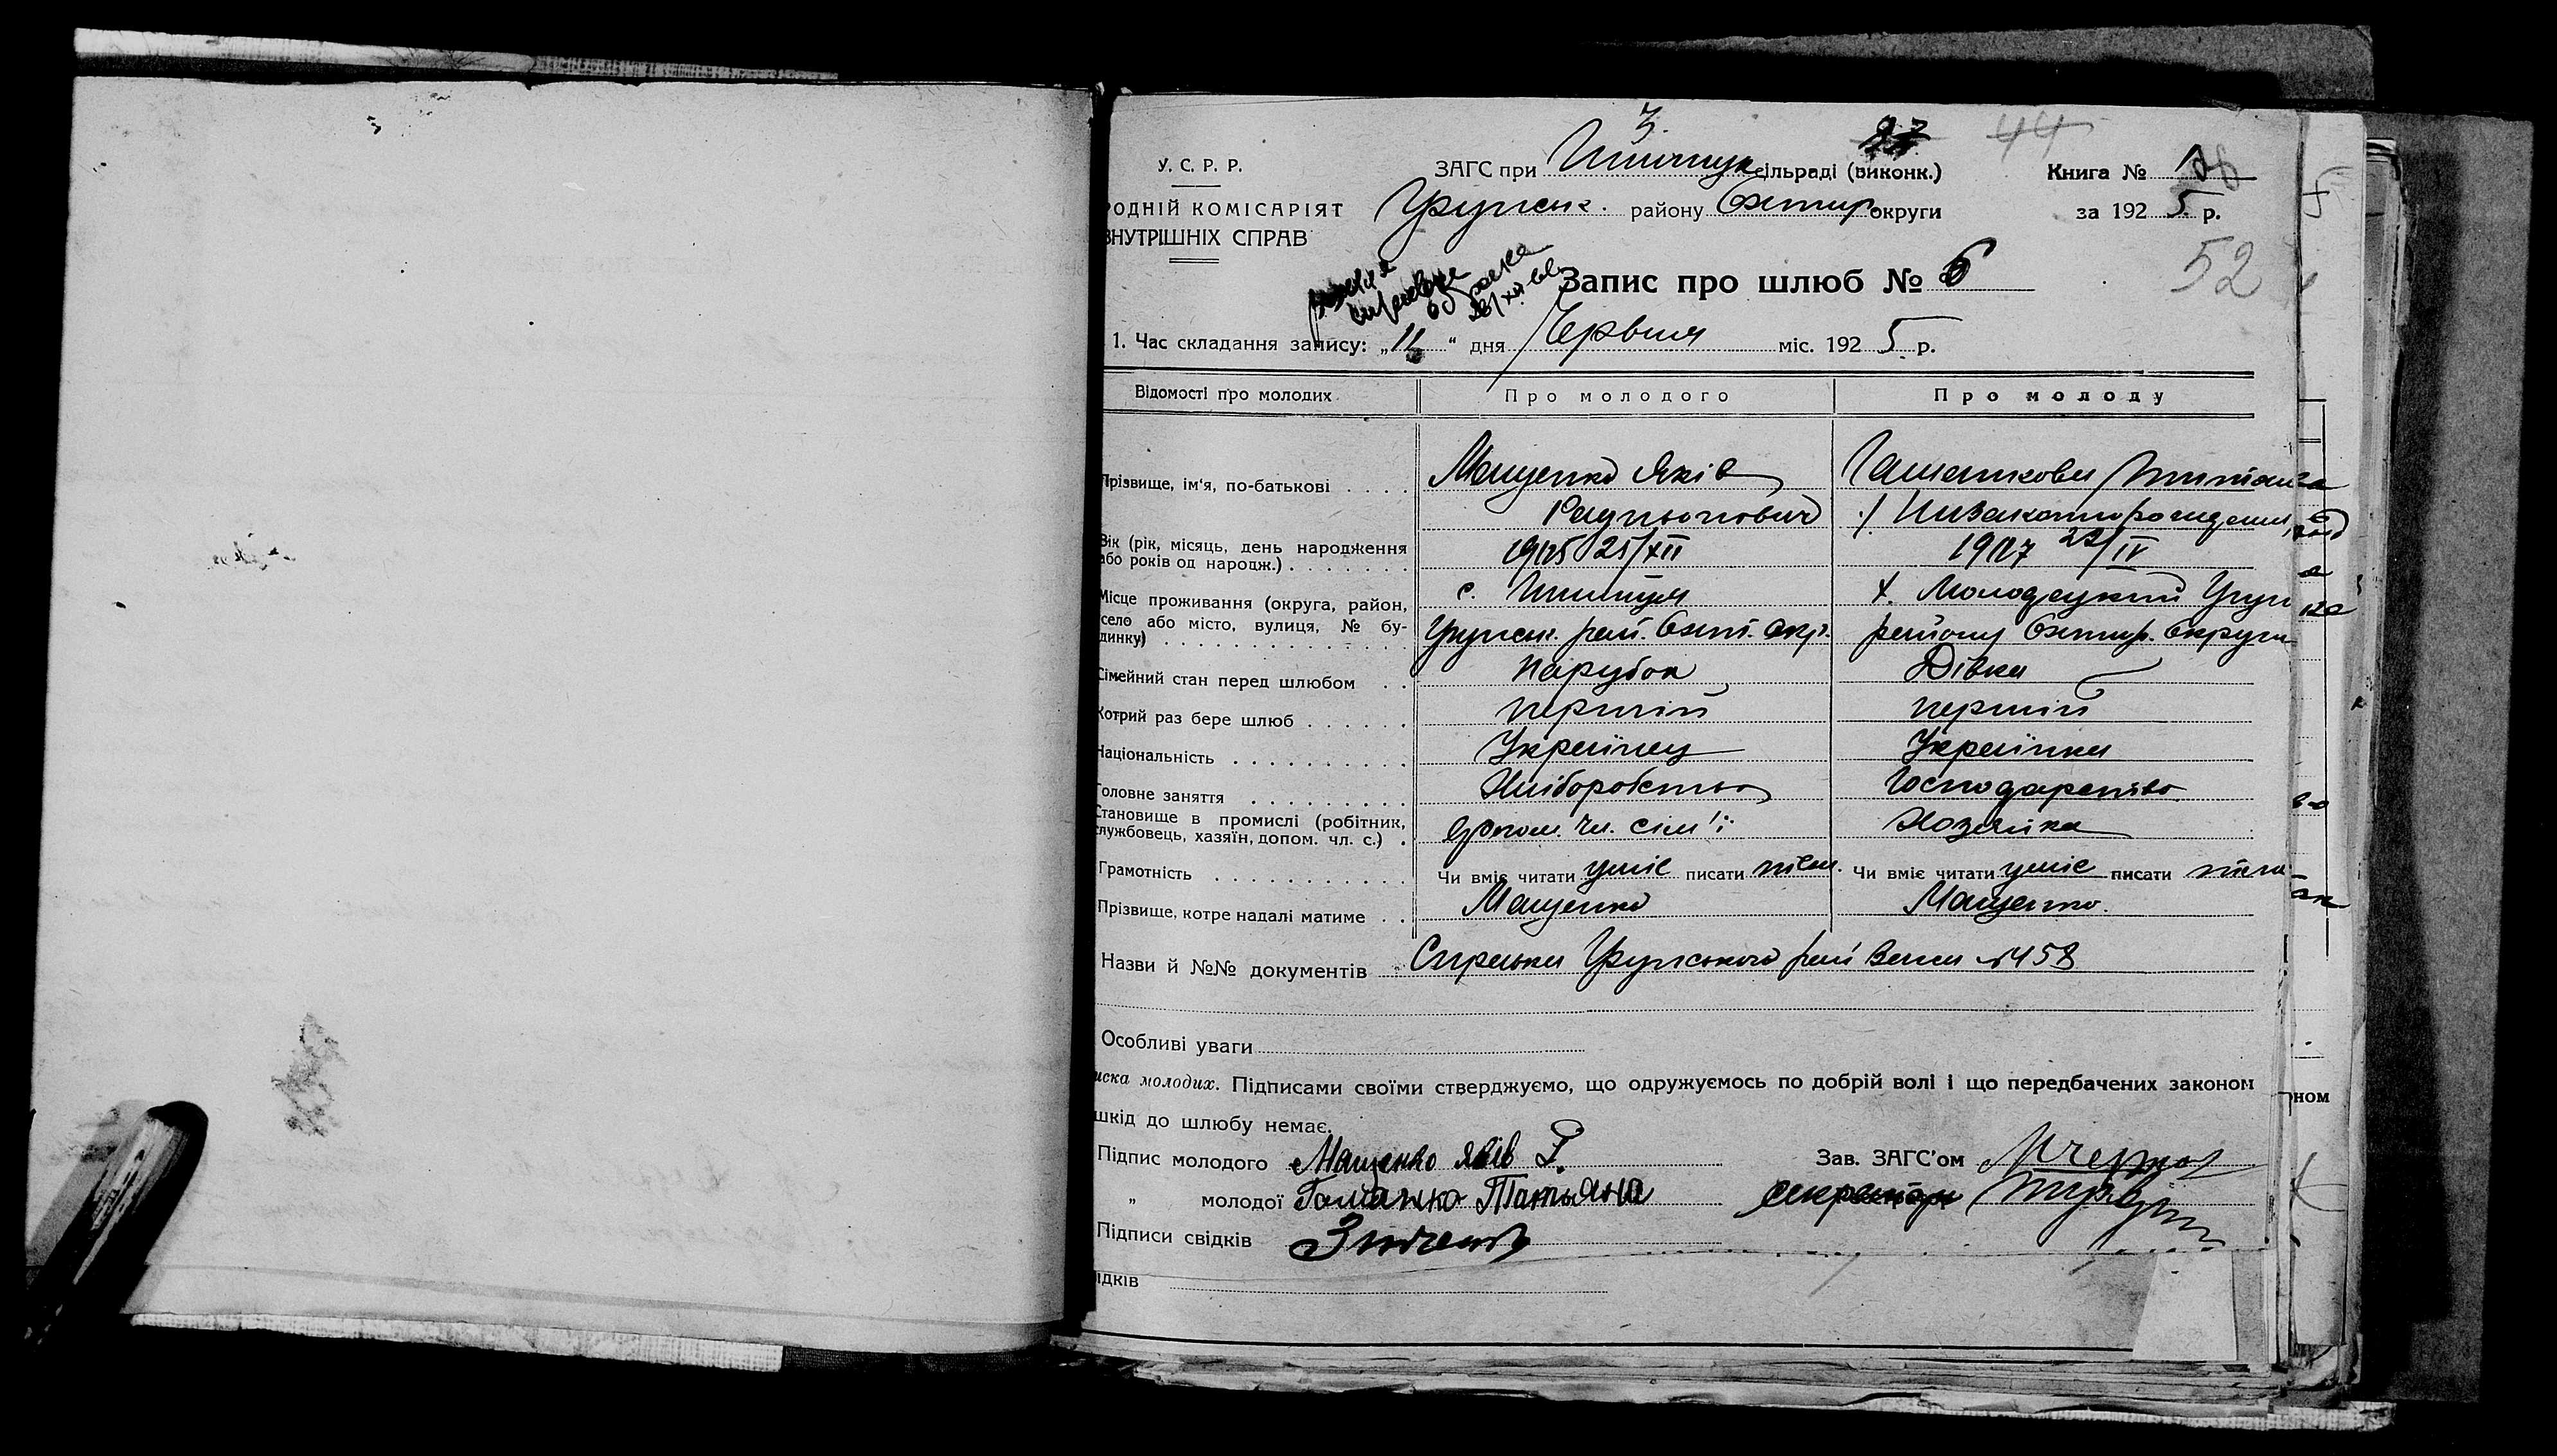 У. С. Р. Р.
РОДНІЙ КОМІСАРІЯТ
ВНУТРІШНІХ СПРАВ
3.
44
ЗАГС при сільраді (виконк.)
Грунськ. району Охтир округи
Книга № 1
за 192 5 р.
52
Запис про шлюб № 6
1. Час складання запису: „11“ дня Червня міс. 192 5 р.
Відомості про молодих Про молодого Про молоду
Прізвище, ім'я, по-батькові Мащенко Яків
Вік (рік, місяць, день народження 1905 25/XII 1907 22/IV
або років од народж.)
Місце проживання (округа, район, с. х. Молодецкий Грун
село або місто, вулиця, № бу- Грунськ. рай. Охт. Окр. району Охтир. Округи
динку)
Сімейний стан перед шлюбом Парубок Дівка
Котрий раз бере шлюб перший перший
Національність Українец Українка
Головне заняття Хліборобство Господарство
Становище в промислі (робітник,
службовець, хазяїн, допом. чл. с.) допом. чл. сім'ї Хозяйка
Грамотність Чи вміє читати уміє писати Чи вміє читати уміє писати
Прізвище, котре надалі матиме Мащенко Мащенко.
Назви й №№ документів Справка Грунського рай №458
Особливі уваги
иска молодих. Підписами своїми стверджуємо, що одружуємось по добрій волі і що передбачених законом
шкід до шлюбу немає.
Підпис молодого Мащенко Яків Р. Зав. ЗАГС'ом
„ молодої Татьяна секретарь
Підписи свідків
ідків
ном